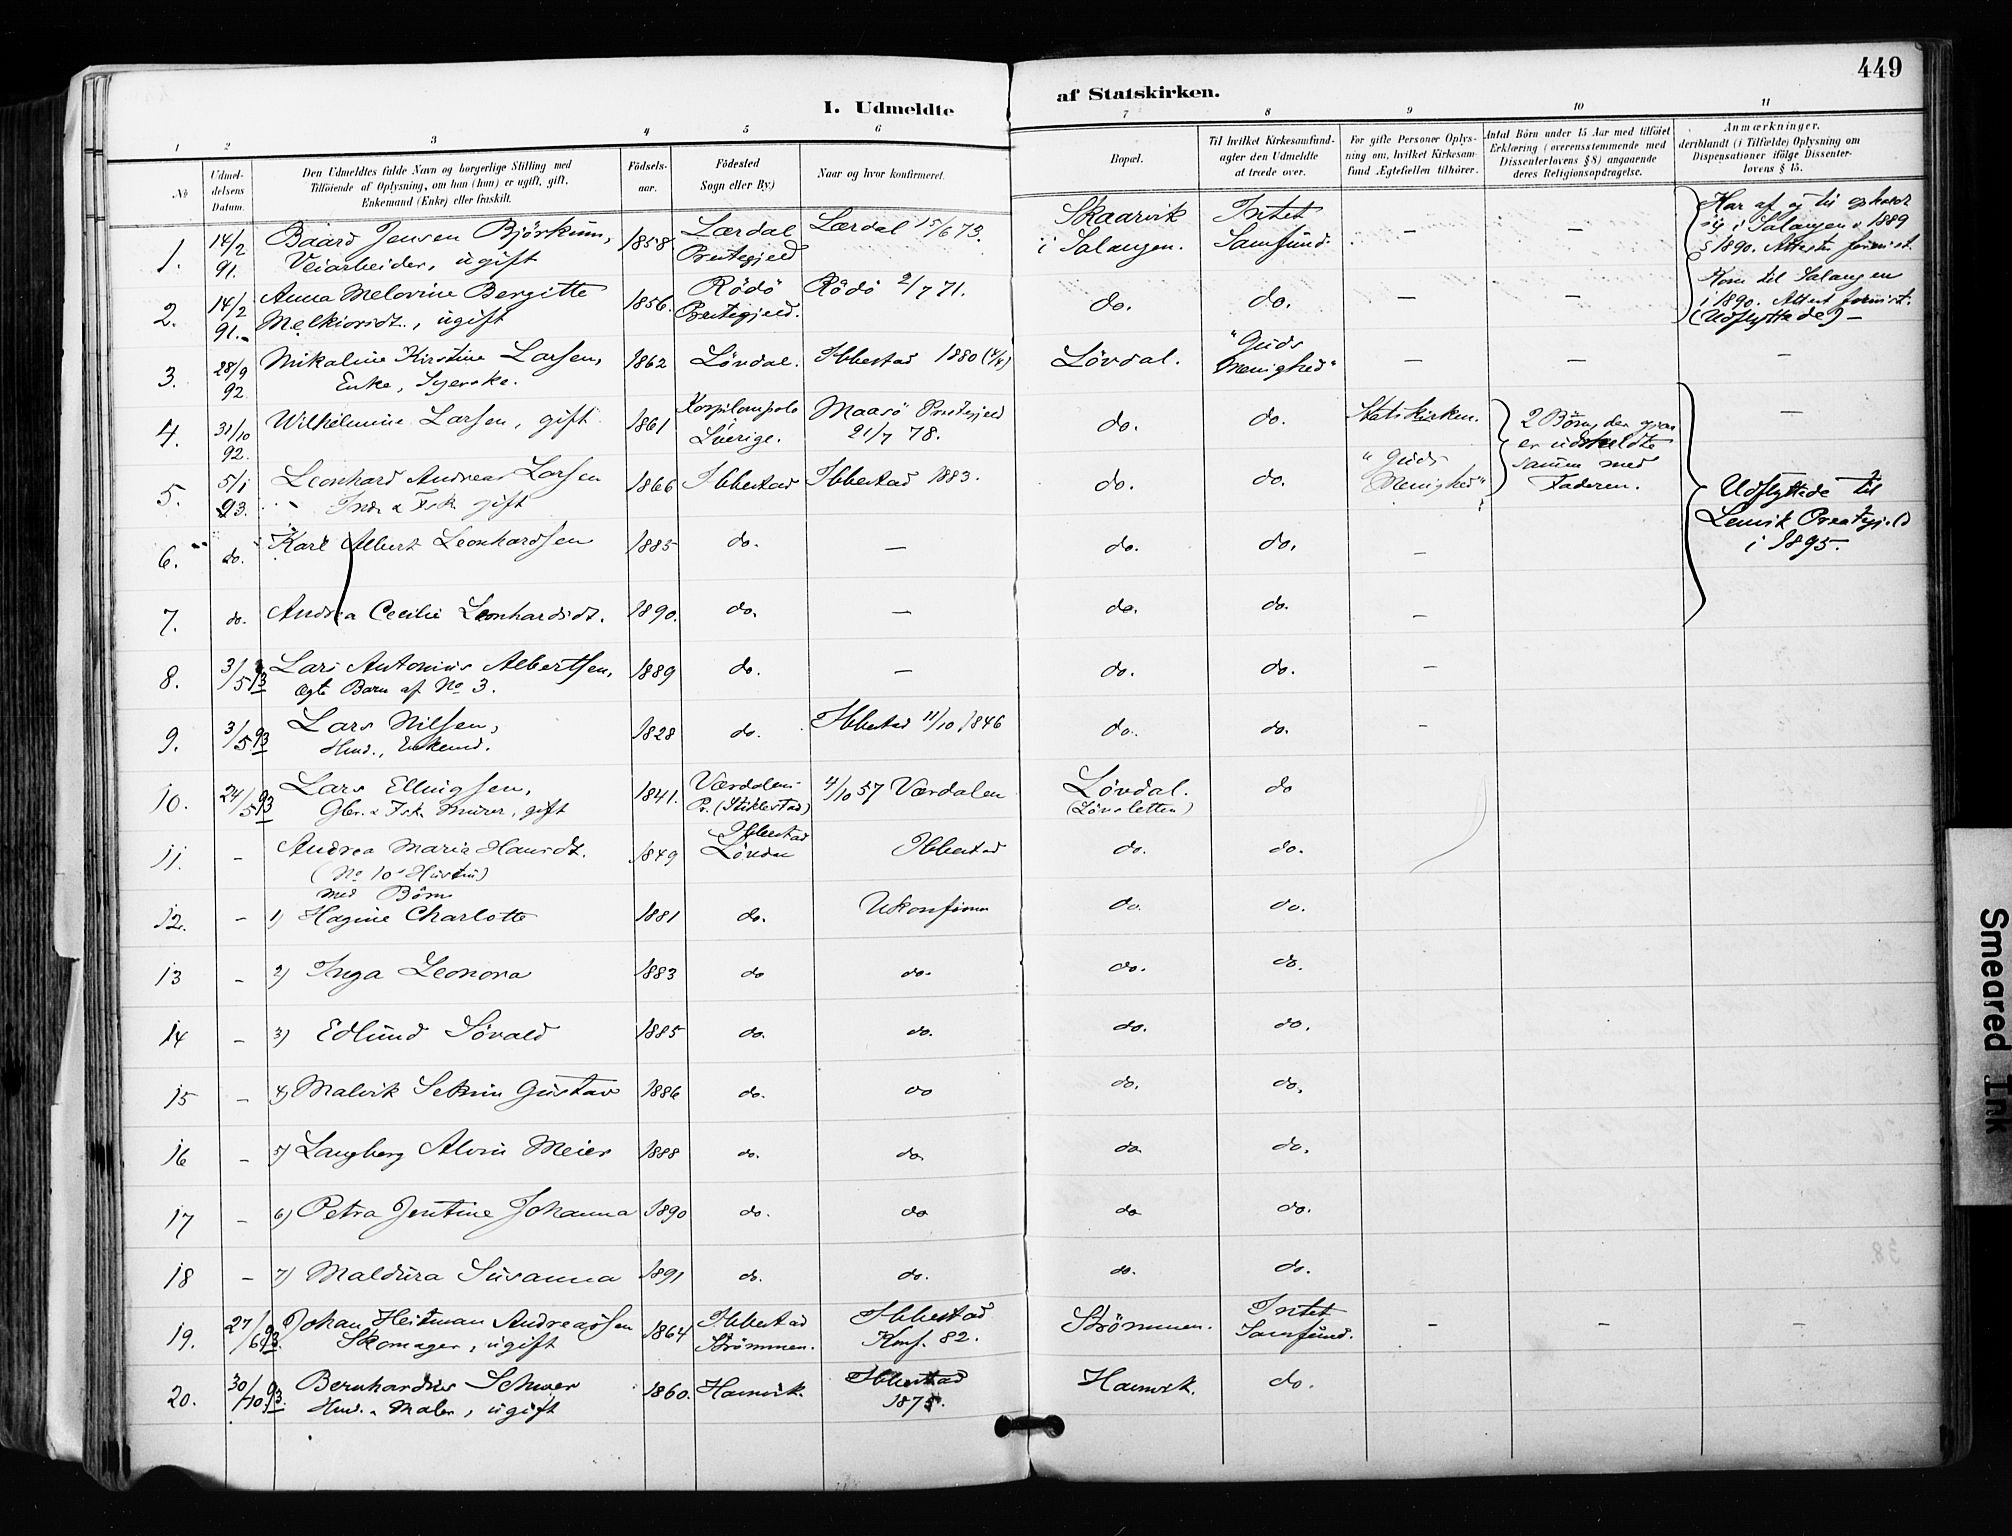 449
I. Udmeldte af Statskirken.
1 2 3 4 5 6 7 8 9 10 11
No
Udmel-
delsens
Datum.
Den Udmeldtes fulde Navn og borgerlige Stilling med
Tilføiende af Oplysning, om han (hun) er ugift, gift,
Enkemand (Enke) eller fraskilt.
Födsels-
aar.
Födested
Sogn eller By.)
Naar og hvor konfirmeret.
Bopæl.
Til hvilket Kirkesamfund-
agter den Udmeldte
at træde over.
For gifte Personer Oplys-
ning om, hvilket Kirkesam-
fund Ægtefællen tilhörer.
Antal Börn under 15 Aar med tilföiet
Erklæring (overensstemmende med
Dissenterlovens § 8) angaaende
deres Religionsopdragelse.
Anmærkninger,
deriblandt (i Tilfælde) Oplysning om
Dispensationer ifölge Dissenter-
lovens § 15.
1. 14/2 91. Baard Jensen Björkum, Veiarbeider, ugift 1858. Lærdal Prestegjeld Lærdal 15/6 73. Skaarvik i Salangen. Intet Samfund. — — Har af og til opholdt sig i Salangen 1889 1890. Attest
2. 14/2 91. Anna Melovine Bergitte Melkiorsdt., ugift 1856. Rödö Prestegjeld. Rödö 2/7 71. do. do. — — Kom til Salangen i 1890. Attest (Udflyttede) —
3. 28/9 92. Mikaline Kirstine Larsen, Enke, Syerske. 1862 Lövdal. Ibbestad 1880 Lövdal. "Guds Menighed" — — —
4. 31/10 92. Wilhelmine Larsen, gift 1861 Sverige. Maasö Prestegjeld 21/7 78. do. do. Statskirken. 2 Börn, der er udmeldte sammen med Faderen. —
5. 5/1 93. Leonhard Andreas Larsen Inds. & Fsk. gift 1866 Ibbestad Ibbestad 1883. do. do. "Guds Menighed" Udflyttede til Lenvik Prestegjeld i 1895.
6. do. Karl Albert Leonhardsen 1885 do. — do. do. —
7. do. Andrea Cecilie Leonhardsdt. 1890. do. — do. do. —
8. 3/5 93 Lars Antonius Albertsen, ægte Barn af No 3. 1889 do. — do. do. —
9. 3/5 93 Lars Nilsen, Hmd., Enkemd. 1828 do. Ibbestad 11/10 1846 do. do. —
10. 24/5 93 Lars Ellingsen, Gbr. & Fsk. Murer, gift 1841. Værdalens Pr. (Stiklestad) 4/10 57 Værdalen Lövdal. (Lövsletten) do
11. — Andrea Maria Hansdt. (No 10's Hustru) med Börn 1849 Ibbestad Lövdal Ibbestad do. do.
12. — 1) Hagine Charlotte 1881 do. Ukonfirm do. do.
13 — 2) Inga Leonora 1883 do do. do. do.
14 — 3) Edlund Sövald 1885 do. do. do. do.
15 — 4) Malvik Selmin Gustav 1886 do. do do. do.
16 — 5) Langberg Alvin Meier 1888 do. do. do do.
17 — 6) Petra Jentine Johanna 1890 do. do do do.
18 — 7) Maldura Susanna 1891 do. do. do. do.
19. 27/6 93. Johan Heitman Andreassen Skomager, ugift 1864 Ibbestad Strömmen. Ibbestad Konf. 82. Strömmen. Intet Samfund. — — —
20. 30/10 93. Bernhardus Schwer Hmd. & Maler, ugift 1860. Hamvik. Ibbestad 1875. Hamvik. do.
Smeared Ink